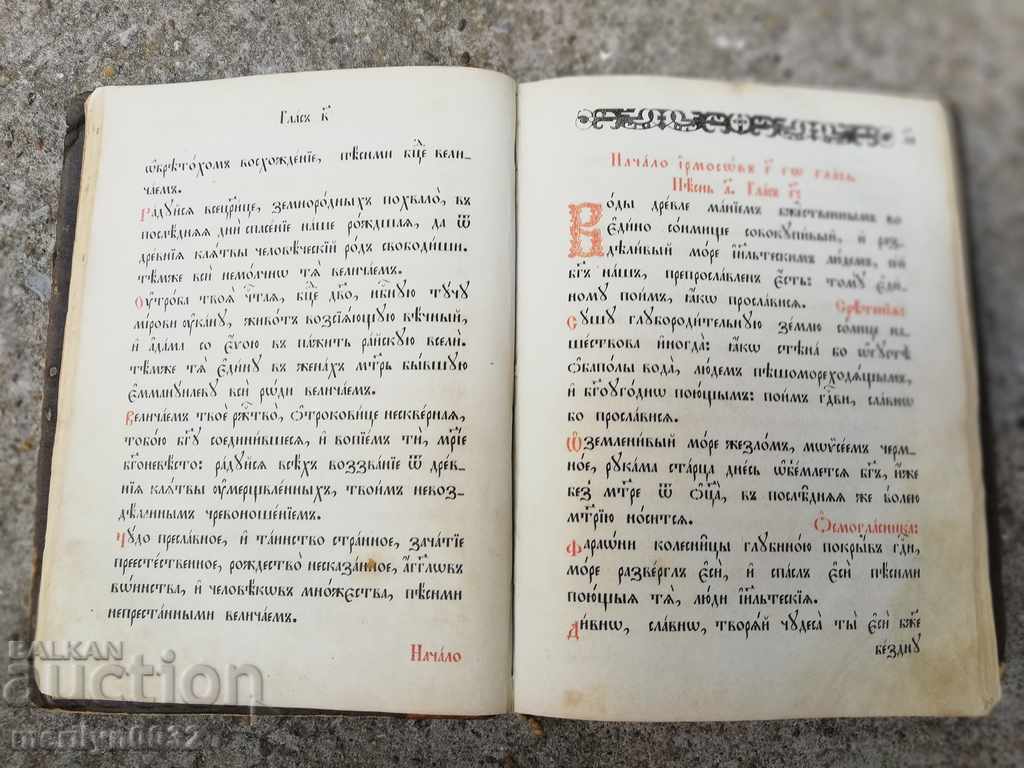 Гла́съ в҃
ѡ҆брѣто́хомъ восхожде́нїе, пѣ́сньми бц҃е вели-
ча́емъ.
Ра́дꙋйсѧ всецр҃и́це, земноро́дныхъ похвало̀, въ
послѣ́днѧѧ дни̑ спасе́нїе на́ше ро́ждшаѧ, да ѿ
дре́внїѧ клѧ́твы человѣ́ческїй ро́дъ свободи́ши.
тѣ́мже всѝ немо́лчнѡ тѧ̀ велича́емъ.
Оу҆тро́ба твоѧ̀ чⷭ҇таѧ, бц҃е дв҃о, нбⷭ҇нꙋю тꙋ́чꙋ
мі́рови оу҆каза̀, живо́тъ возсїѧ́ющꙋю вѣ́чный,
и҆ а҆да́ма со є҆́ѵою въ па́жить ра́йскꙋю вселѝ.
тѣ́мже тѧ̀ є҆ди́нꙋ въ жена́хъ мт҃рь бы́вшꙋю
є҆ммані́левꙋ всѝ ро́ди велича́емъ.
Велича́емъ твоѐ ржⷭ҇тво̀, ѻ҆трокови́це нескве́рнаѧ,
тобо́ю бг҃ꙋ соедини́вшесѧ, и҆ вопїе́мъ тѝ, мр҃і́е
бг҃оневѣ́сто: ра́дꙋйсѧ всѣ́хъ воззва́нїе ѿ дре́в-
нїѧ клѧ́твы оу҆мерщвле́нныхъ, твои́мъ невоз-
дѣ́ланнымъ чревоноше́нїемъ.
Чꙋ́до пресла́вное, и҆ та́инство стра́нное, зача́тїе
преесте́ственное, рождество̀ несказа́нное, а҆́гг҃лѡвъ
вѡ́инства, и҆ человѣ́кѡвъ мно́жєства, пѣ́сньми
непреста́нными велича́емъ.
Нача́ло
Нача́ло і҆рмосѡ́въ г҃ гѡ гла́са.
Пѣ́снь а҃. Гла́съ г҃:
Во́ды дре́вле ма́нїемъ бжⷭ҇твеннымъ во
є҆ди́но со́нмище совокꙋпи́вый, и҆ раз-
дѣли́вый мо́ре і҆и҃льтескимъ лю́демъ, се́й
бг҃ъ на́шъ, препросла́вленъ є҆́сть: томꙋ̀ є҆ди́-
номꙋ пои́мъ, ꙗ҆́кѡ просла́висѧ.
Срѣ́тенїѧ:
Сꙋ́шꙋ глꙋбороди́тельнꙋю зе́млю со́лнце на-
ше́ствова и҆ногда̀: ꙗ҆́кѡ стѣна̀ бо ѡ҆гꙋстѣ̀
ѻ҆ба́полы вода̀, лю́демъ пѣшоморехода́щымъ,
и҆ бг҃оꙋго́днѡ пою́щымъ: пои́мъ гдⷭ҇ви, сла́внѡ
бо просла́висѧ.
Ѡ҆земленѝвый мо́ре жезло́мъ, мѡѷсе́емъ черм-
но́е, рꙋка́ма ста́рца дне́сь ѡ҆б̾е́млетсѧ бг҃ъ, и҆́же
без̾ мт҃ре ѿ ѻ҆ц҃а̀, въ послѣ́днѧѧ же во́лею
мт҃рїю но́ситсѧ.
Ѻ҆смогла́сника:
Фараѡ́ни колесни̑цы глꙋбино́ю покры́въ гдⷭ҇и,
мо́ре разве́рглъ є҆сѝ, и҆ спа́слъ є҆сѝ пѣ́сньми
пою́щыѧ тѧ̀, лю́ди і҆и҃льтескїѧ.
Ди́внѡ, сла́внѡ, творѧ́й чꙋдеса̀ ты̀ є҆сѝ бж҃е
бе́зднꙋ
BALKAN
auction
merilyn0032